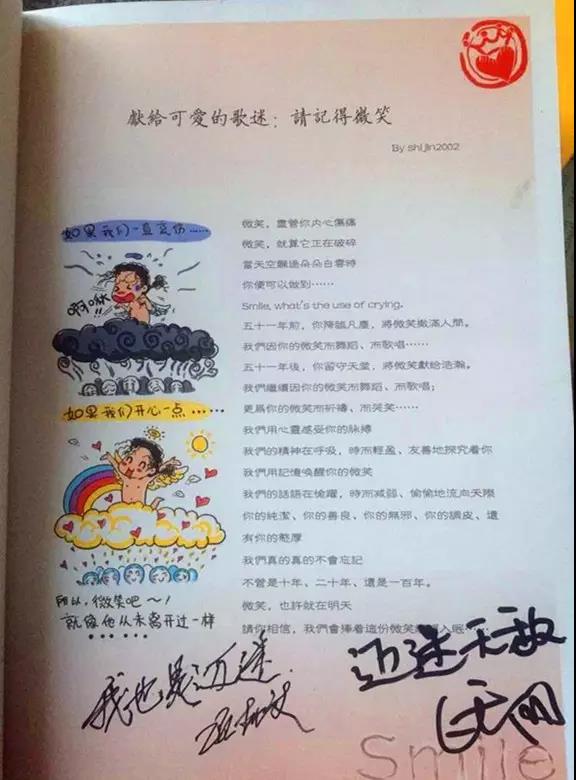 獻給可愛的歌迷：請記得微笑
By shijin2002
如果我们一直哀伤……
啊啾!!
如果我们开心一点……
所以，微笑吧~!
就像他从未离开过一样
微笑，盡管你內心傷痛
微笑，就算它正在破碎
當天空飄過朵朵白雲時
你便可以做到……
Smile, what's the use of crying.
五十一年前，你降臨凡塵，將微笑撒滿人間。
我們因你的微笑而舞蹈、而歌唱……
五十一年後，你留守天堂，將微笑獻給浩瀚。
我們繼續因你的微笑而舞蹈、而歌唱；
更爲你的微笑而祈禱、而哭笑……
我們用心靈感受你的脉縛
我們的精神在呼吸，時而輕盈、友善地探究着你
我們用記憶喚醒你的微笑
我們的話語在偷躍，時而减弱、偷偷地流向天限
你的純潔、你的善良、你的無邪、你的調皮、還
有你的憨厚
我們真的真的不會忘記
不管是十年、二十年、還是一百年。
微笑，也許就在明天
請你相信，我們會捧着這份微笑入眠……
我也是迈迷
迈迷无敌
Smile